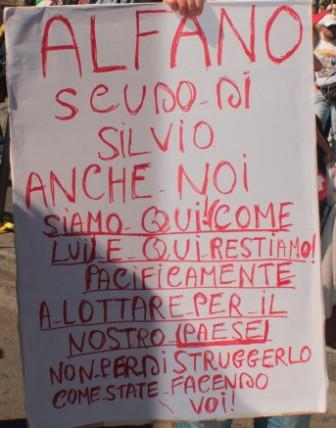 ALFANO
SCUDO-DI
SILVIO
ANCHE-NOI
SIAMO-QUI!COME
LUI)E-QUI-RESTIAMO!
PACIFICAMENTE
A-LOTTARE-PER-IL
NOSTRO(PAESE)
NON-PERDISTRUGGERLO
COME-STATE-FACENDO
VOI!